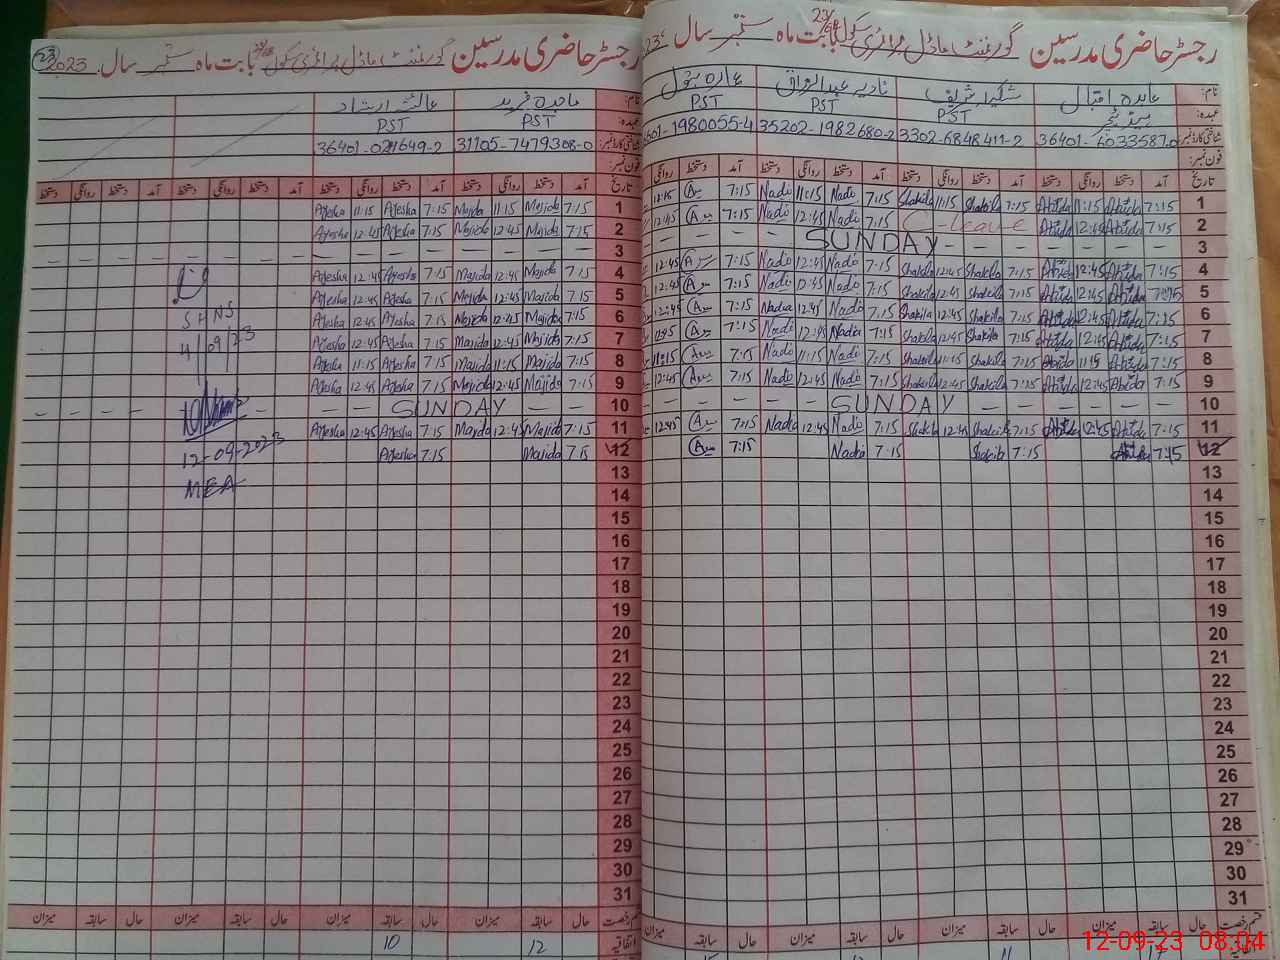 رجسٹر حاضری مدرسین گورنمنٹ ماڈل پرائمری سکول بابت ماہ ستمبر سال
نام: عابدہ اقبال شکیلہ شریف نادیہ عبدالرزاق
عہدہ: ہیڈ ٹیچر PST PST PST
شناختی کارڈ نمبر: 35202-1982680-2
فون نمبر:
تاریخ آمد دستخط روانگی دستخط آمد دستخط روانگی دستخط آمد دستخط روانگی دستخط آمد دستخط روانگی
1 7:15 Abida 11:15 Abida 7:15 Shakila 11:15 Shakila 7:15 Nadi 11:15 Nadi 7:15
2 7:15 Abida 12:45 Abida C-leave 7:15 Nadi 12:45 Nadi 7:15 12:45
3 SUNDAY
4 7:15 Abida 12:45 Abida 7:15 Shakila 12:45 Shakila 7:15 Nadi 12:45 Nadi 7:15 12:45
5 7:15 Abida 12:45 Abida 7:15 Shakila 12:45 Shakila 7:15 Nadi 12:45 Nadi 7:15 12:45
6 7:15 Abida 12:45 Abida 7:15 Shakila 12:45 Shakila 7:15 Nadi 12:45 Nadia 7:15 12:45
7 7:15 Abida 12:45 Abida 7:15 Shakila 12:45 Shakila 7:15 Nadia 12:45 Nadi 7:15
8 7:15 Abida 11:15 Abida 7:15 Shakila 11:15 Shakila 7:15 Nadi 11:15 Nadi 7:15 11:15
9 7:15 Abida 12:45 Abida 7:15 Shakila 12:45 Shakila 7:15 Nadi 12:45 Nadi 7:15 12:45
10 SUNDAY
11 7:15 Abida 12:45 Abida 7:15 Shakila 12:45 Shakila 7:15 Nadi 12:45 Nadia 7:15 12:45
12 7:15 Abida 7:15 Shakila 7:15 Nadia 7:15
13
14
15
16
17
18
19
20
21
22
23
24
25
26
27
28
29
30
31
حال سابقہ میزان حال سابقہ میزان حال سابقہ میزان حال سابقہ میزان
رجسٹر حاضری مدرسین گورنمنٹ ماڈل پرائمری سکول بابت ماہ ستمبر سال 2023
نام: ماجدہ فرید عائشہ ارشاد
عہدہ: PST PST
شناختی کارڈ نمبر: 31105-7479308-0
فون نمبر:
تاریخ آمد دستخط روانگی دستخط آمد دستخط روانگی دستخط آمد دستخط روانگی دستخط آمد دستخط روانگی دستخط
1 7:15 Majida 11:15 Majida 7:15 Ayesha 11:15 Ayesha
2 7:15 Majida 12:45 Majida 7:15 Ayesha 12:45 Ayesha
3
4 7:15 Majida 12:45 Majida 7:15 Ayesha 12:45 Ayesha
5 7:15 Majida 12:45 Majida 7:15 Ayesha 12:45 Ayesha
6 7:15 Majida 12:45 Majida 7:15 Ayesha 12:45 Ayesha
7 7:15 Majida 12:45 Majida 7:15 Ayesha 12:45 Ayesha
8 7:15 Majida 11:15 Majida 7:15 Ayesha 11:15 Ayesha
9 7:15 Majida 12:45 Majida 7:15 Ayesha 12:45 Ayesha
10 SUNDAY
11 7:15 Majida 12:45 Majida 7:15 Ayesha 12:45 Ayesha
12 7:15 Majida 7:15 Ayesha
13
14
15
16
17
18
19
20
21
22
23
24
25
26
27
28
29
30
31
SHNS
4/09/23
12-09-2023
MEA
حال سابقہ میزان حال سابقہ میزان حال سابقہ میزان حال سابقہ میزان
اتفاقیہ 12 10
12-09-23 08:04